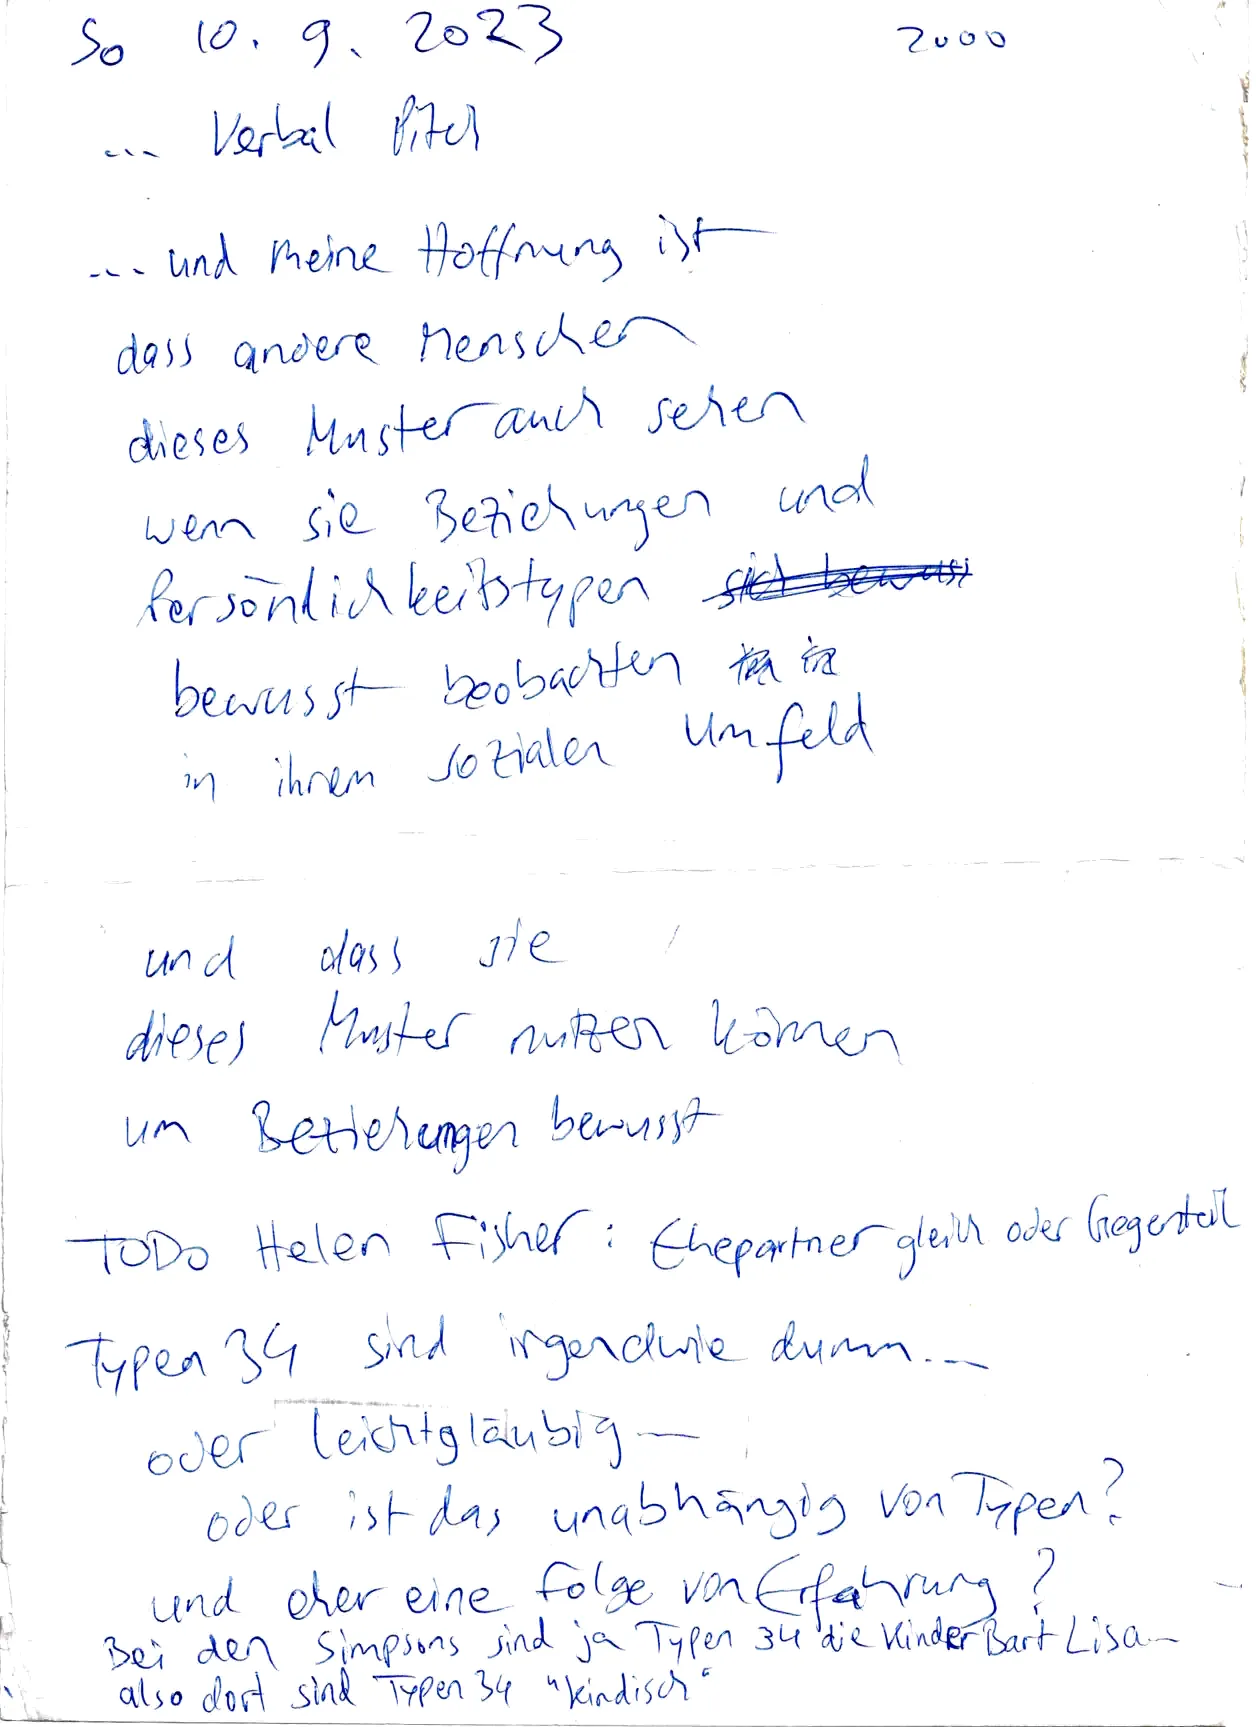 So 10. 9. 2023 2000
... Verbal Pitch
... und meine Hoffnung ist
dass andere Menschen
dieses Muster auch sehen
wenn sie Beziehungen und
Persönlichkeitstypen sich bewusst
bewusst beobachten in
in ihrem sozialen Umfeld
und dass sie
dieses Muster nutzen können
um Beziehungen bewusst
TODO Helen Fisher: Ehepartner gleich oder Gegenteil
Typen 34 sind irgendwie dumm...
oder leichtgläubig —
oder ist das unabhängig von Typen?
und eher eine Folge von Erfahrung?
Bei den Simpsons sind ja Typen 34 die Kinder Bart Lisa —
also dort sind Typen 34 "kindisch"